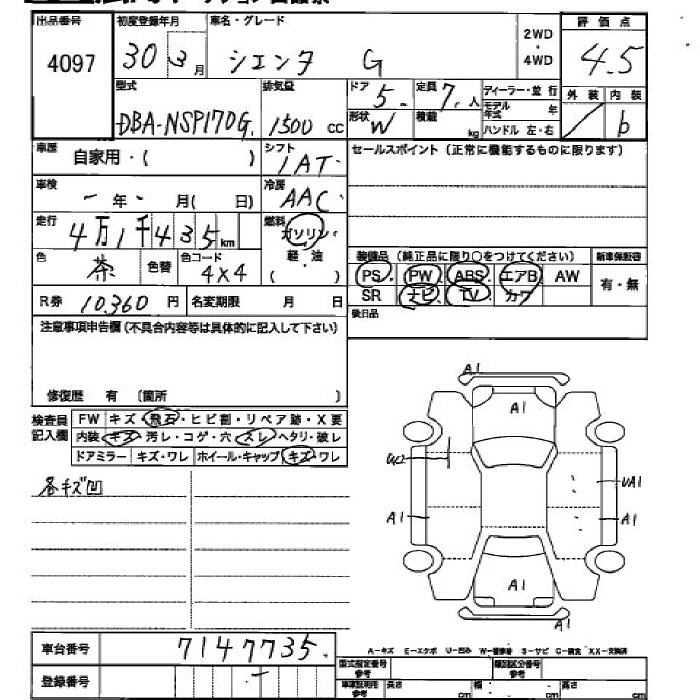 出品番号 初度登録年月 車名・グレード 2WD・4WD 評価点
4097 30 3月 シエンタ G 4.5
型式 排気量 ドア 5. 定員 7.人 ディーラー・並行 外装 内装
DBA-NSP170G. 1500cc 形状 W 積載 kg モデル年式 年 ハンドル 左・右 / b
車歴 自家用・( ) シフト 1AT セールスポイント(正常に機能するものに限ります)
車検 - 年 - 月( 日) 冷房 AAC
走行 4万1千435km 燃料 ガソリン・軽・油 ( )
色 茶 色替 色コード 4X4 装備品(純正品に限り○をつけてください) 新車保証書
PS PW ABS エアB AW 有・無
SR ナビ TV カワ
R券 10,360円 名変期限 月 日 後日品
注意事項申告欄(不具合内容等は具体的に記入して下さい)
修復歴 有 〔箇所 〕
検査員記入欄 FW キズ・飛石・ヒビ割・リペア跡・X要
内装 キズ・汚レ・コゲ・穴・スレ・ヘタリ・破レ
ドアミラー キズ・ワレ ホイール・キャップ キズ・ワレ
各キズ凹
A1
A1
W2
UA1
A1 A1
A1
A1
A-キズ E-エクボ U-凹み W-補修跡 S-サビ C-腐食 XX-交換済
車台番号 7147735.
登録番号 -
型式指定番号 参考 類別区分番号 参考
車庫証明用 参考 長さ cm 幅 cm 高さ cm